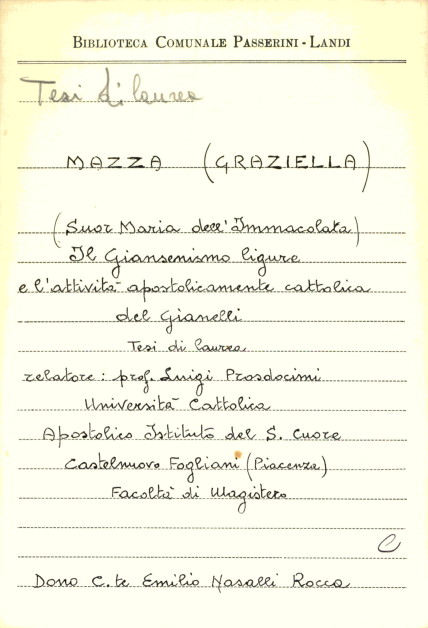 BIBLIOTECA COMUNALE PASSERINI - LANDI
Tesi di laurea
MAZZA (GRAZIELLA)
(Suor Maria dell'Immacolata)
Il Giansenismo ligure
e l'attività apostolicamente cattolica
del Gianelli
Tesi di laurea
relatore: prof. Luigi Prosdocimi
Università Cattolica
Apostolico Istituto del S. Cuore
Castelnuovo Fogliani (Piacenza)
Facoltà di Magistero
C
Dono C.te Emilio Nasalli Rocca